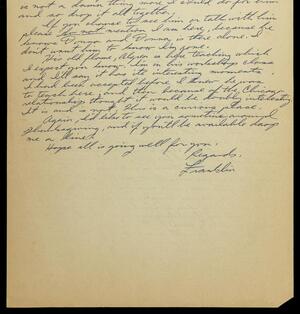 is not a damn thing more I could do for him
and so drop it all together.
If you choose to see him or talk with him
please do not mention I am here, because he
knows Donna and Donna is there alone. I
don't want him to know I'm gone.
Her old flame, Algren is here teaching which
I expect you know. I'm in his workshop class
and I'll say it has its interesting moments.
I had been accepted before I knew he was
to teach here, and then because of the Chicago
relationships thought it would be doubly interesting
It is and is not. This is a curious place.
Again, I'd like to see you sometime around
Thanksgiving, and if you'll be available drop
me a line?
Hope all is going well for you.
Regards,
Franklin